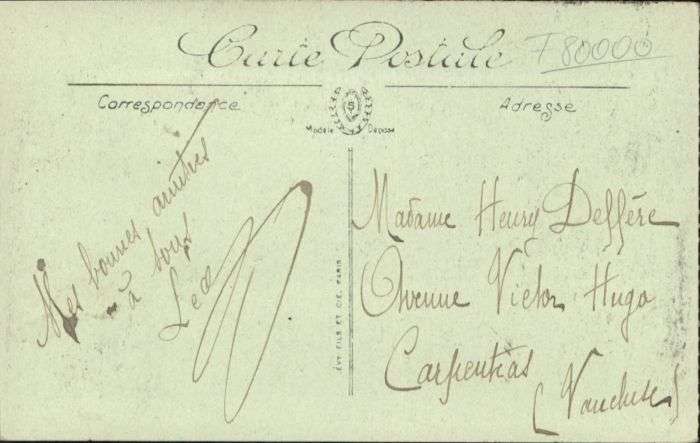 Carte Postale
F80000
Correspondance
Adresse
S
Modèle Déposé
Mes bonnes amitiés
à tous
Madame Henry Deffère
Avenue Victor Hugo
Carpentras
(Vaucluse)
ÉVY FILS ET CIE, PARIS